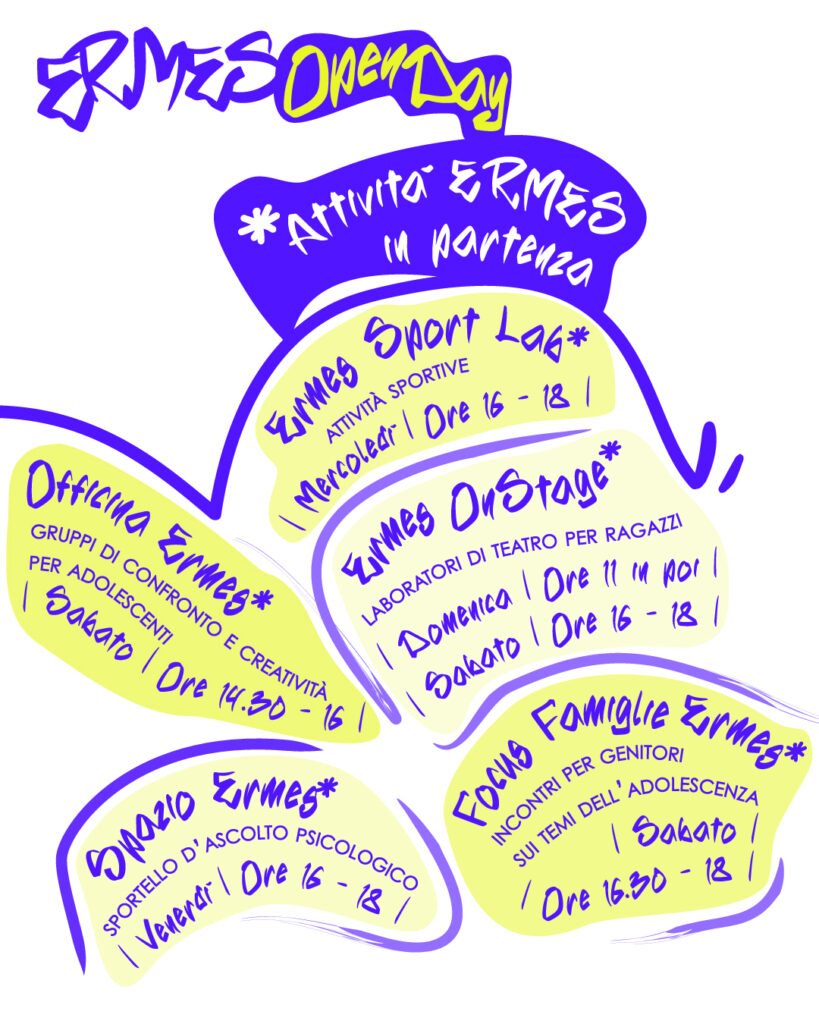 ERMES Open Day
*Attività ERMES
in partenza
Ermes Sport Lab*
ATTIVITÀ SPORTIVE
| Mercoledì | Ore 16 - 18 |
Officina Ermes*
GRUPPI DI CONFRONTO E CREATIVITÀ
PER ADOLESCENTI
| Sabato | Ore 14.30 - 16 |
Ermes OnStage*
LABORATORI DI TEATRO PER RAGAZZI
| Domenica | Ore 11 in poi |
| Sabato | Ore 16 - 18 |
Spazio Ermes*
SPORTELLO D'ASCOLTO PSICOLOGICO
| Venerdì | Ore 16 - 18 |
Focus Famiglie Ermes*
INCONTRI PER GENITORI
SUI TEMI DELL'ADOLESCENZA
| Sabato |
| Ore 16.30 - 18 |